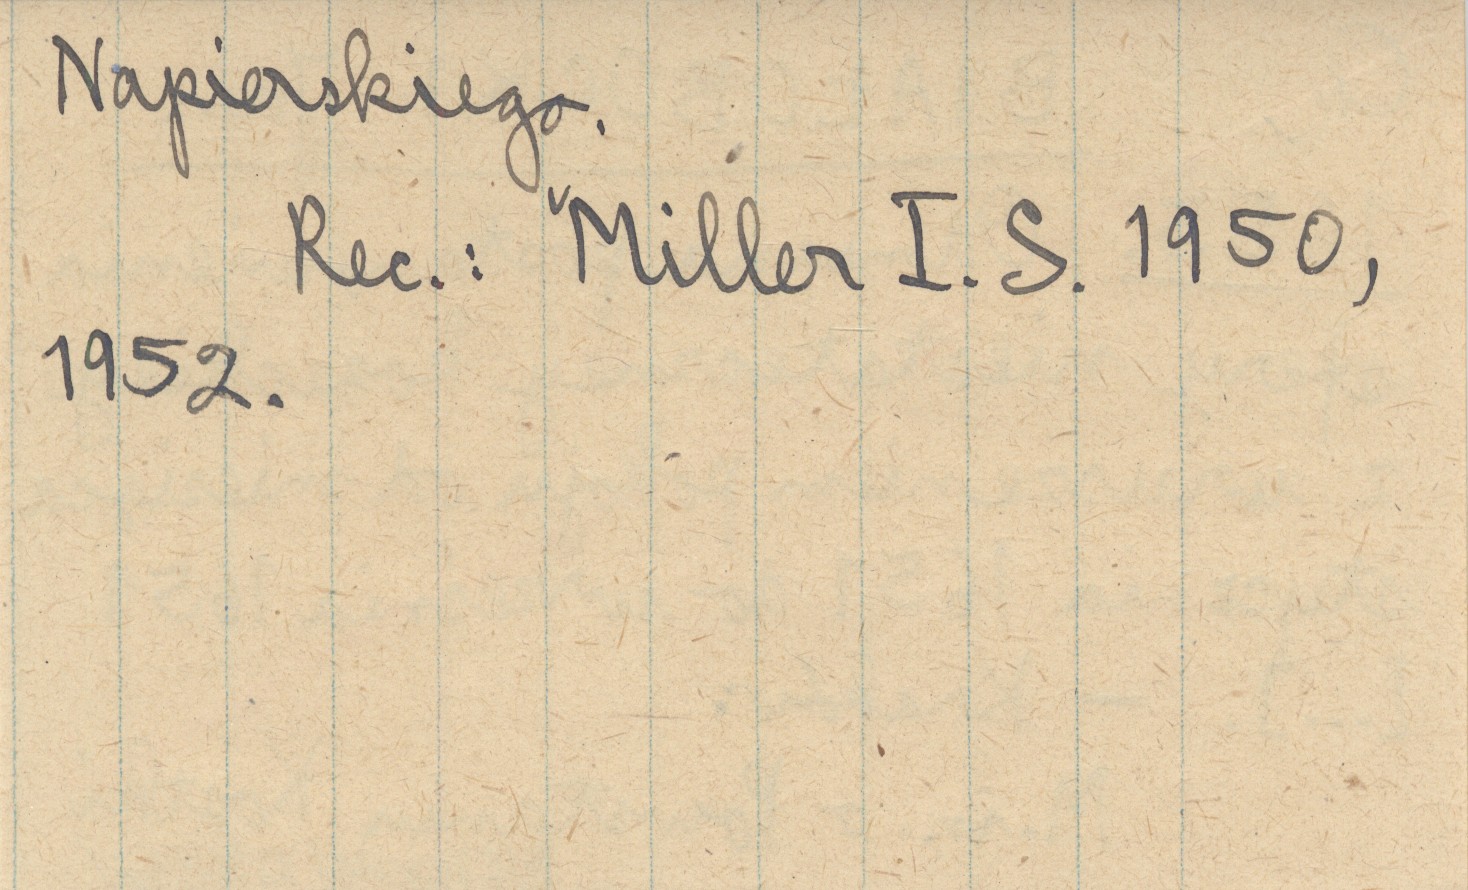 Napierskiego.
Rec.: Miller I. S. 1950,
1952.